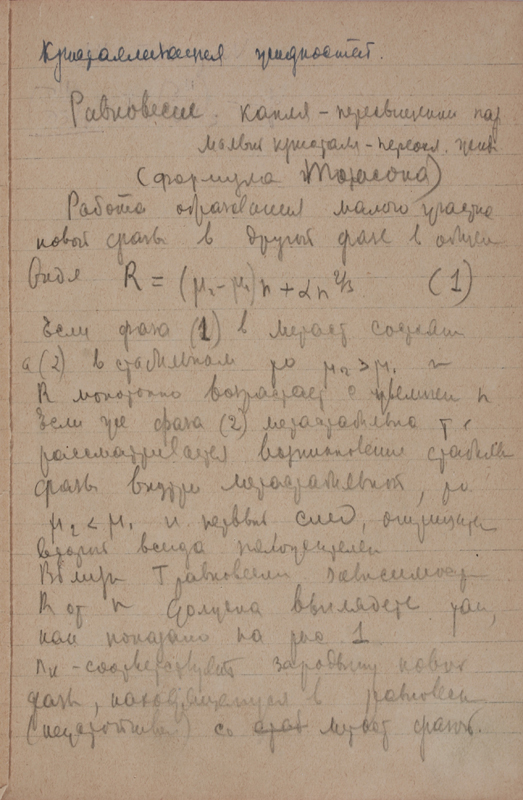 Кристаллизация жидкостей.
Равновесие. капля - пересыщенный пар
малый кристалл - переохл. жидк.
(формула Томсона)
Работа образования малого участка
новой фазы в другой фазе в общем
виде R = (μ₂ - μ₁)n + αn^2/3 (1)
Если фаза (1) в метаст состоян
а (2) в стабильном то μ₂ > μ₁ и
R монотонно возрастает с увелич n
Если же фаза (2) метастабильна т.
рассматривается возникновение стабильн
фазы внутри метастабильной, то
μ₂ < μ₁ и первый член отрицате
второй всегда положителен
Вблизи T равновесия зависимост
R от n должна выглядеть так,
как показано на рис 1
nк - соответствует зародышу новой
фазы, находящемуся в равновеси
(неустойчивом) со метаст фазой.